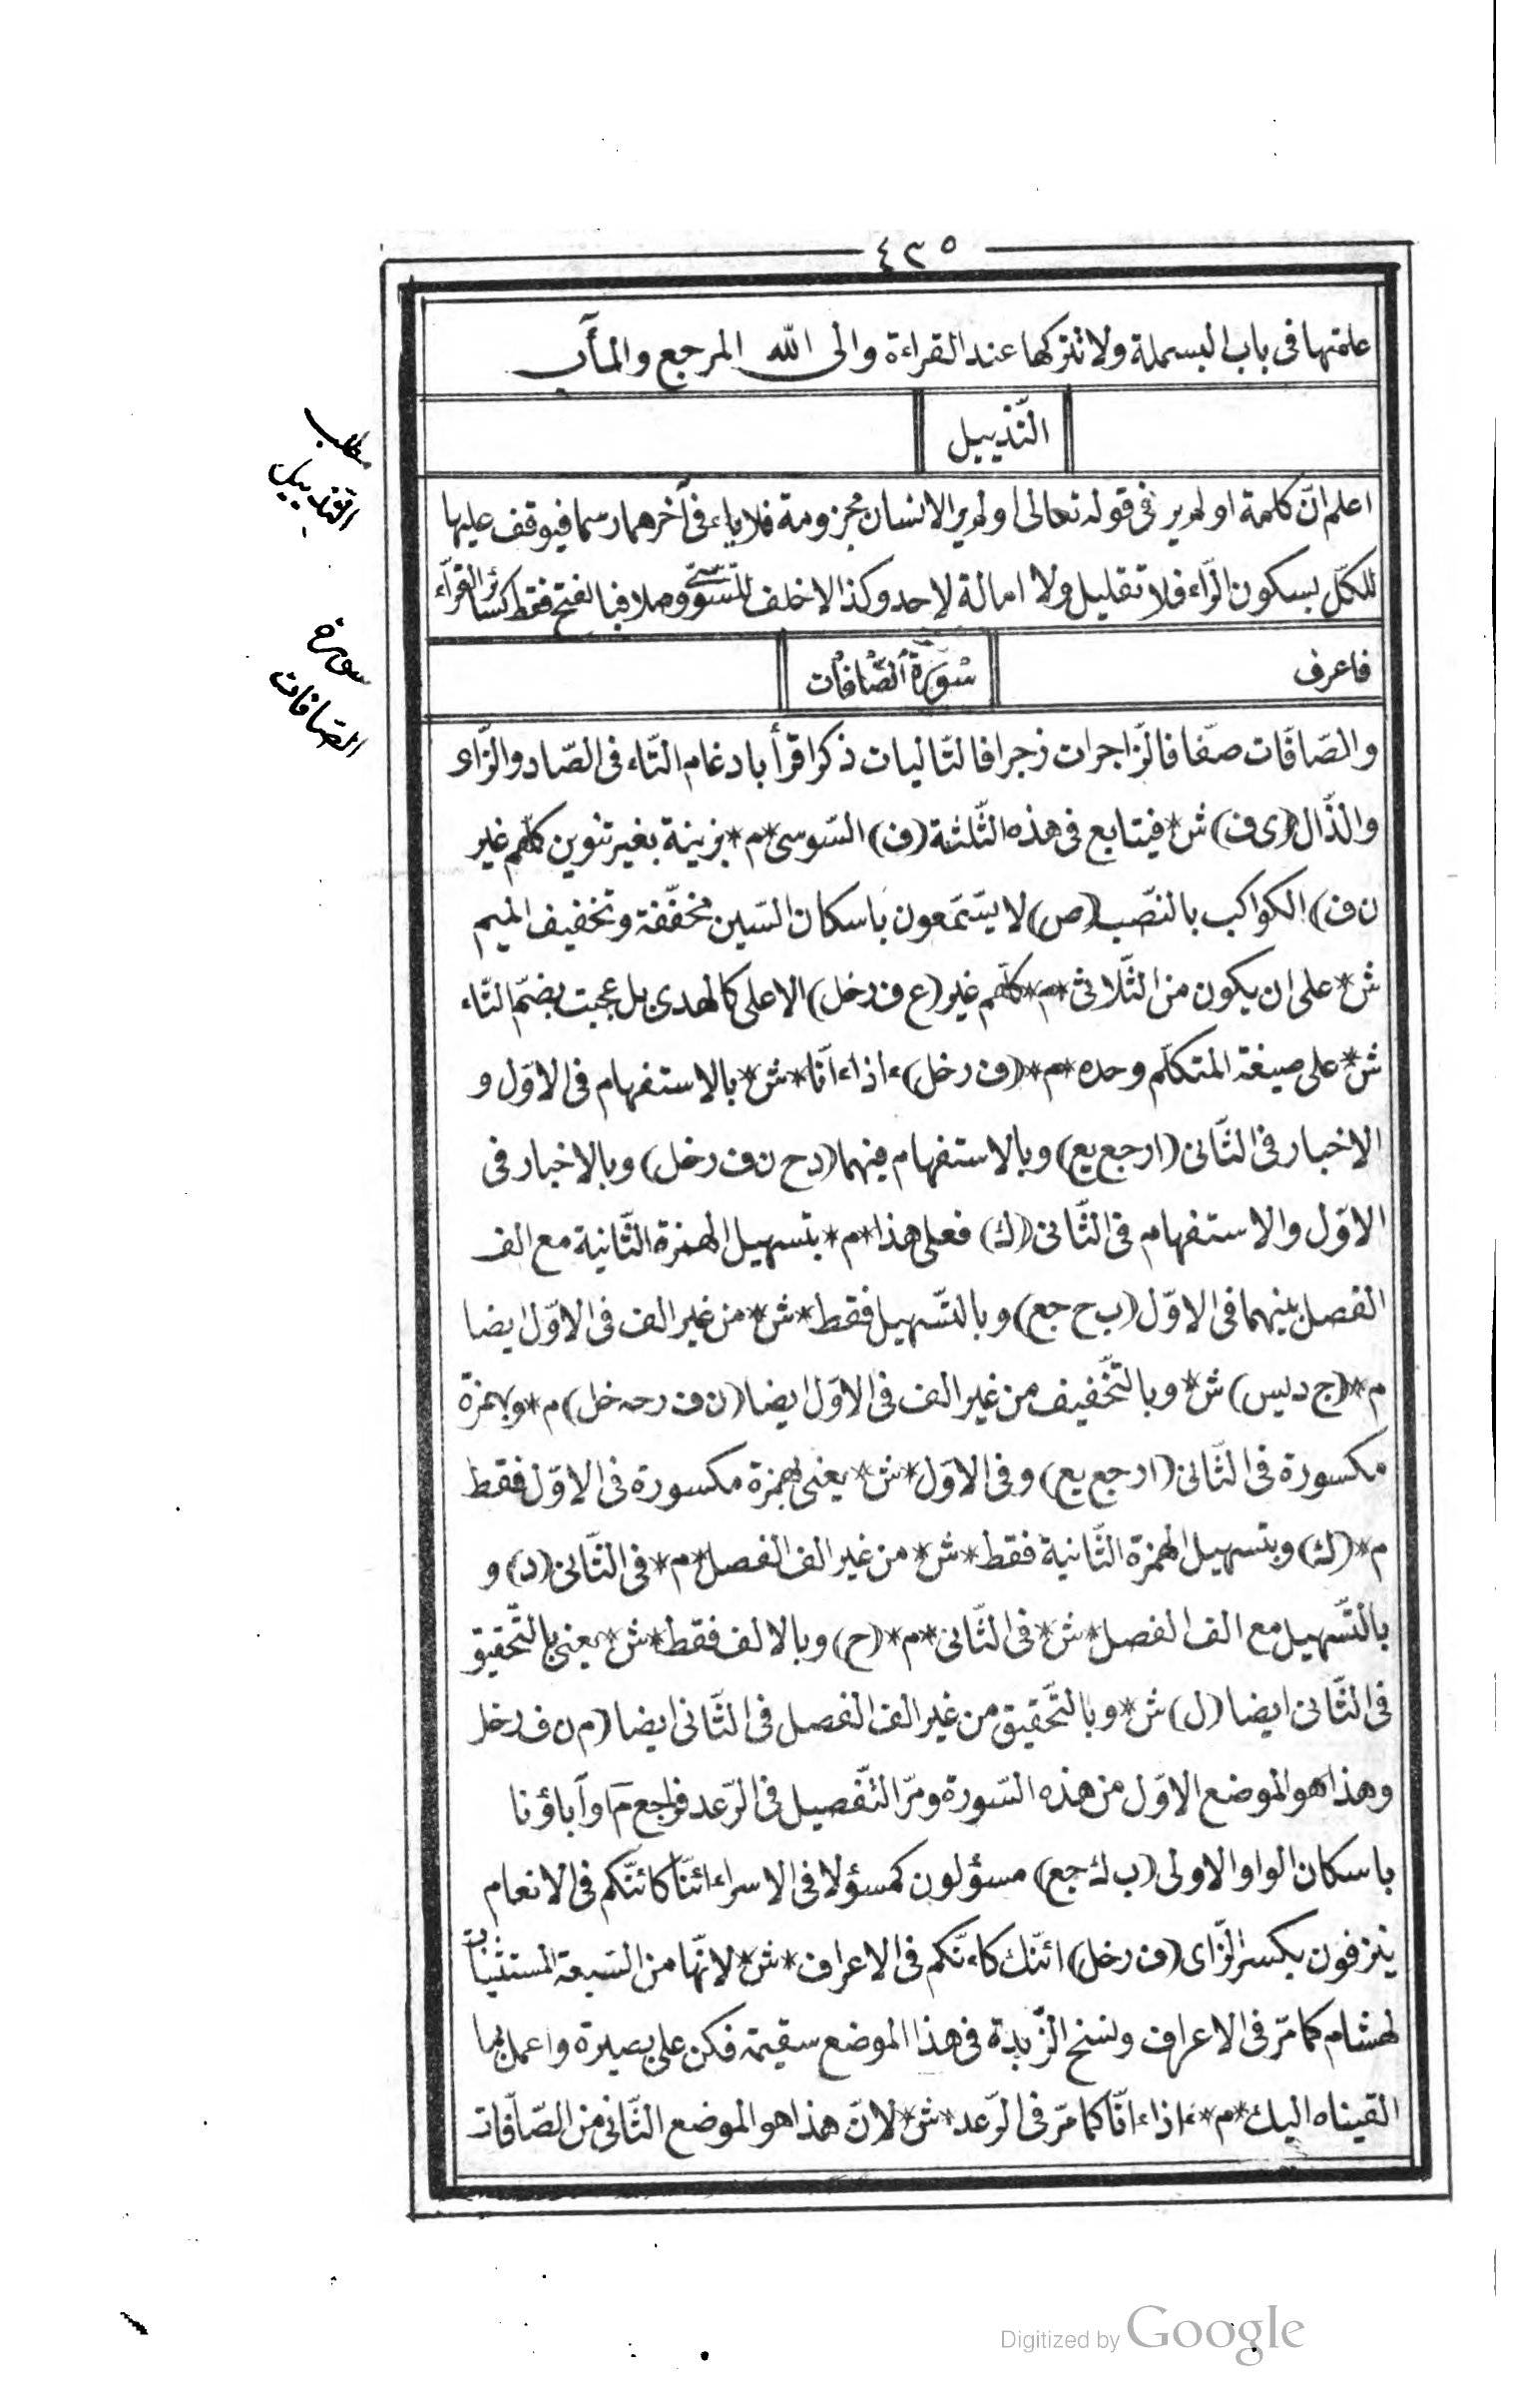 ٤٣٥
علمتها فى باب البسملة ولا تتركها عند القراءة والى الله المرجع والمآب
التّذييل
مطلب
التّذييل
اعلم انّ كلمة اولم ير فى قوله تعالى اولم ير الانسان مجزومة فلا ياء فى آخرهما رسما فيوقف عليها
للكلّ بسكون الرّاء فلا تقليل ولا امالة لاحد وكذا لا خلف للسّوسىّ وصلا فبالفتح فقط كسائر القرّاء
فاعرف
سُورَةُ الصَّافَّات
سورة
الصّافات
والصّافّات صفّا فالزّاجرات زجرا فالتّاليات ذكرا قرأ بادغام التّاء فى الصّاد والزّاء
والذّال (ى ف) ش* فيتابع فى هذه الثّلثة (ف) السّوسى *م* بزينة بغير تنوين كلّهم غير
ن ف) الكواكب بالنّصب (ص) لا يسّمّعون باسكان السّين مخفّفة وتخفيف الميم
ش* على ان يكون من الثّلاثى *م* كلّهم غير (ع ف رخل) الاعلى كالهدى بل عجبت بضمّ التّاء
ش* على صيغة المتكلّم وحده *م* (ف رخل) ءاذا ءانّا *ش* بالاستفهام فى الاوّل و
الاخبار فى الثّانى (ا ر جع يع) وبالاستفهام فيهما (د ح ن ف رخل) وبالاخبار فى
الاوّل والاستفهام فى الثّانى (ك) فعلى هذا *م* بتسهيل الهمزة الثّانية مع الف
الفصل بينهما فى الاوّل (ب ح جع) وبالتّسهيل فقط *ش* من غير الف فى الاوّل ايضا
م* (ج د يس) ش* وبالتّخفيف من غير الف فى الاوّل ايضا (ن ف ر حه خل) م* وبهمزة
مكسورة فى الثّانى (ا ر جع يع) وفى الاوّل *ش* يعنى بهمزة مكسورة فى الاوّل فقط
م* (ك) وبتسهيل الهمزة الثّانية فقط *ش* من غير الف الفصل *م* فى الثّانى (د) و
بالتّسهيل مع الف الفصل *ش* فى الثّانى *م* (ح) وبالالف فقط *ش* يعنى بالتّحقيق
فى الثّانى ايضا (ل) ش* وبالتّحقيق من غير الف الفصل فى الثّانى ايضا (م ن ف رخل
وهذا هو الموضع الاوّل من هذه السّورة ومرّ التّفصيل فى الرّعد فراجع م* أو آباؤنا
باسكان الواو الاولى (ب ك جع) مسؤلون كمسؤلا فى الاسراء ائنّا كائنّكم فى الانعام
ينزفون بكسر الزّاى (ف رخل) ائنّك كاءنّكم فى الاعراف *ش* لانّها من السّبعة المستثنيات
لهشام كما مرّ فى الاعراف ونسخ الزّبدة فى هذا الموضع سقيمة فكن على بصيرة واعمل بما
القيناه اليك *م* ءاذا ءانّا كما مرّ فى الرّعد *ش* لانّ هذا هو الموضع الثّانى من الصّافّات
Digitized by Google